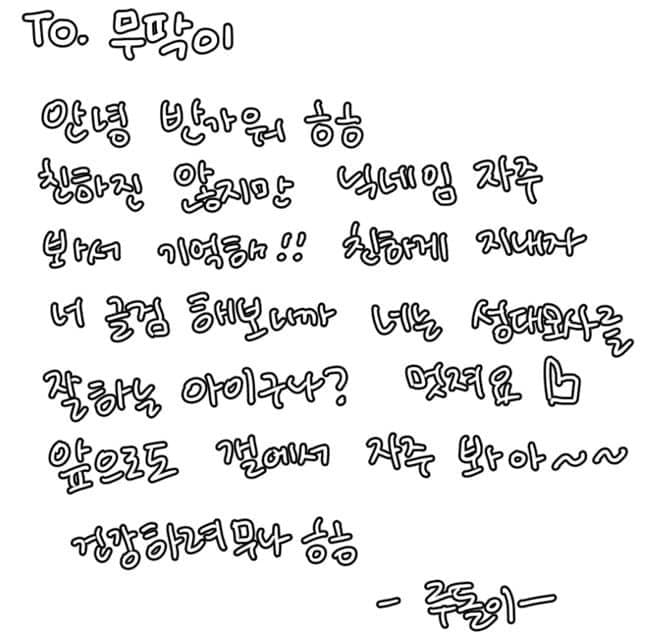 To. 무딱이
안녕 반가워 ㅎㅎ
친하진 않지만 닉네임 자주
봐서 기억해!! 친하게 지내자
너 글검 해보니까 너는 성대모사를
잘하는 아이구나? 멋져요
앞으로도 갤에서 자주 봐아~~
건강하려무나 ㅎㅎ
- 루돌이-